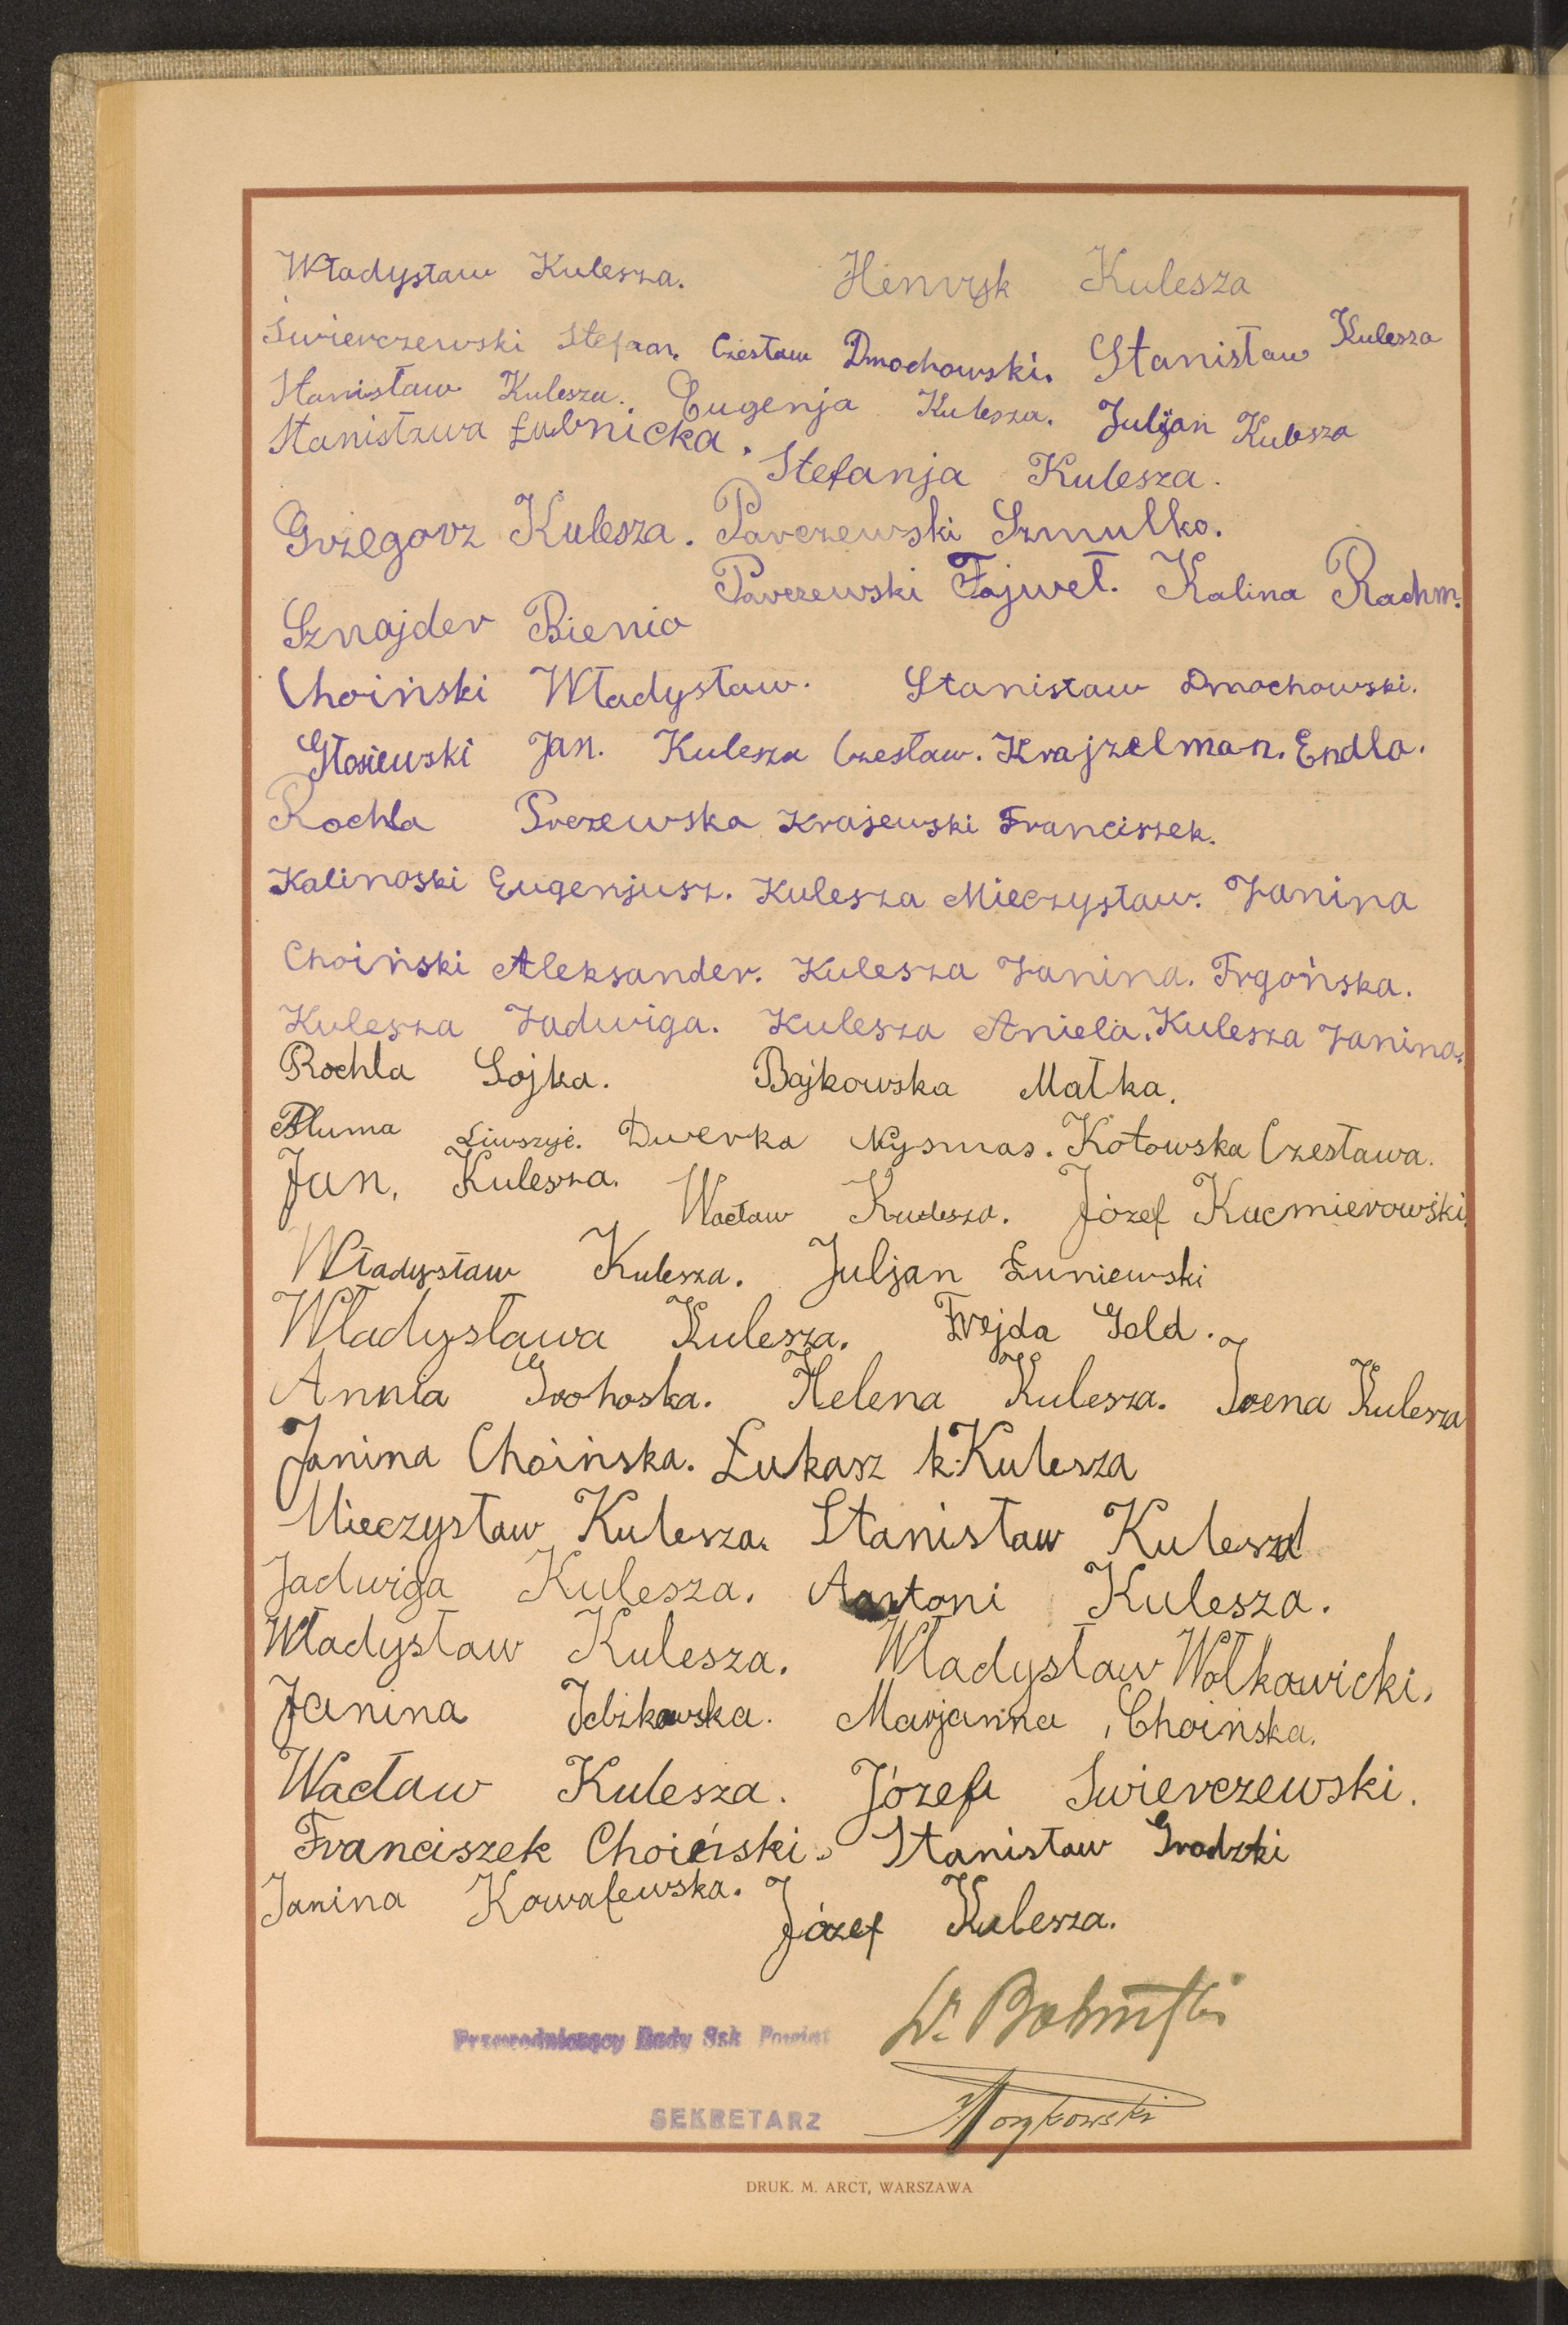 Władysław Kulesza. Henryk Kulesza
Świerczewski Stefan. Czesław Dmochowski. Stanisław Kulesza
Stanisław Kulesza. Eugenja Kulesza. Juljan Kulesza
Stanisława Łubnicka. Stefanja Kulesza.
Grzegorz Kulesza. Parczewski Szmulko.
Parczewski Fajweł. Kalina Rachm.
Sznajder Bienio
Choiński Władysław. Stanisław Dmochowski.
Głosiewski Jan. Kulesza Czesław. Krajzelman. Endla.
Rochla Prczewska Krajewski Franciszek.
Kalinoski Eugenjusz. Kulesza Mieczysław. Janina
Choiński Aleksander. Kulesza Janina. Trgońska.
Kulesza Jadwiga. Kulesza Aniela. Kulesza Janina.
Rochla Sojka. Bajkowska Małka.
Bluma Liwszyc. Dwerka Nysmas. Kotowska Czesława.
Jan, Kulesza. Wacław Kulesza. Józef Kucmierowski.
Władysław Kulesza. Juljan Łuniewski
Władysława Kulesza. Frejda Gold.
Annia Grohoska. Helena Kulesza. Irena Kulesza
Janina Choińska. Łukasz k. Kulesza
Mieczysław Kulesza. Stanisław Kulesza
Jadwiga Kulesza. Antoni Kulesza.
Władysław Kulesza. Władysław Wołkawicki.
Janina Idzikowska. Marjanna Choińska.
Wacław Kulesza. Józefa Swierczewski.
Franciszek Choiński. Stanisław Grodzki
Janina Kowalewska. Józef Kulesza.
Przewodniczący Rady Szk Powiat
SEKRETARZ
DRUK. M. ARCT, WARSZAWA